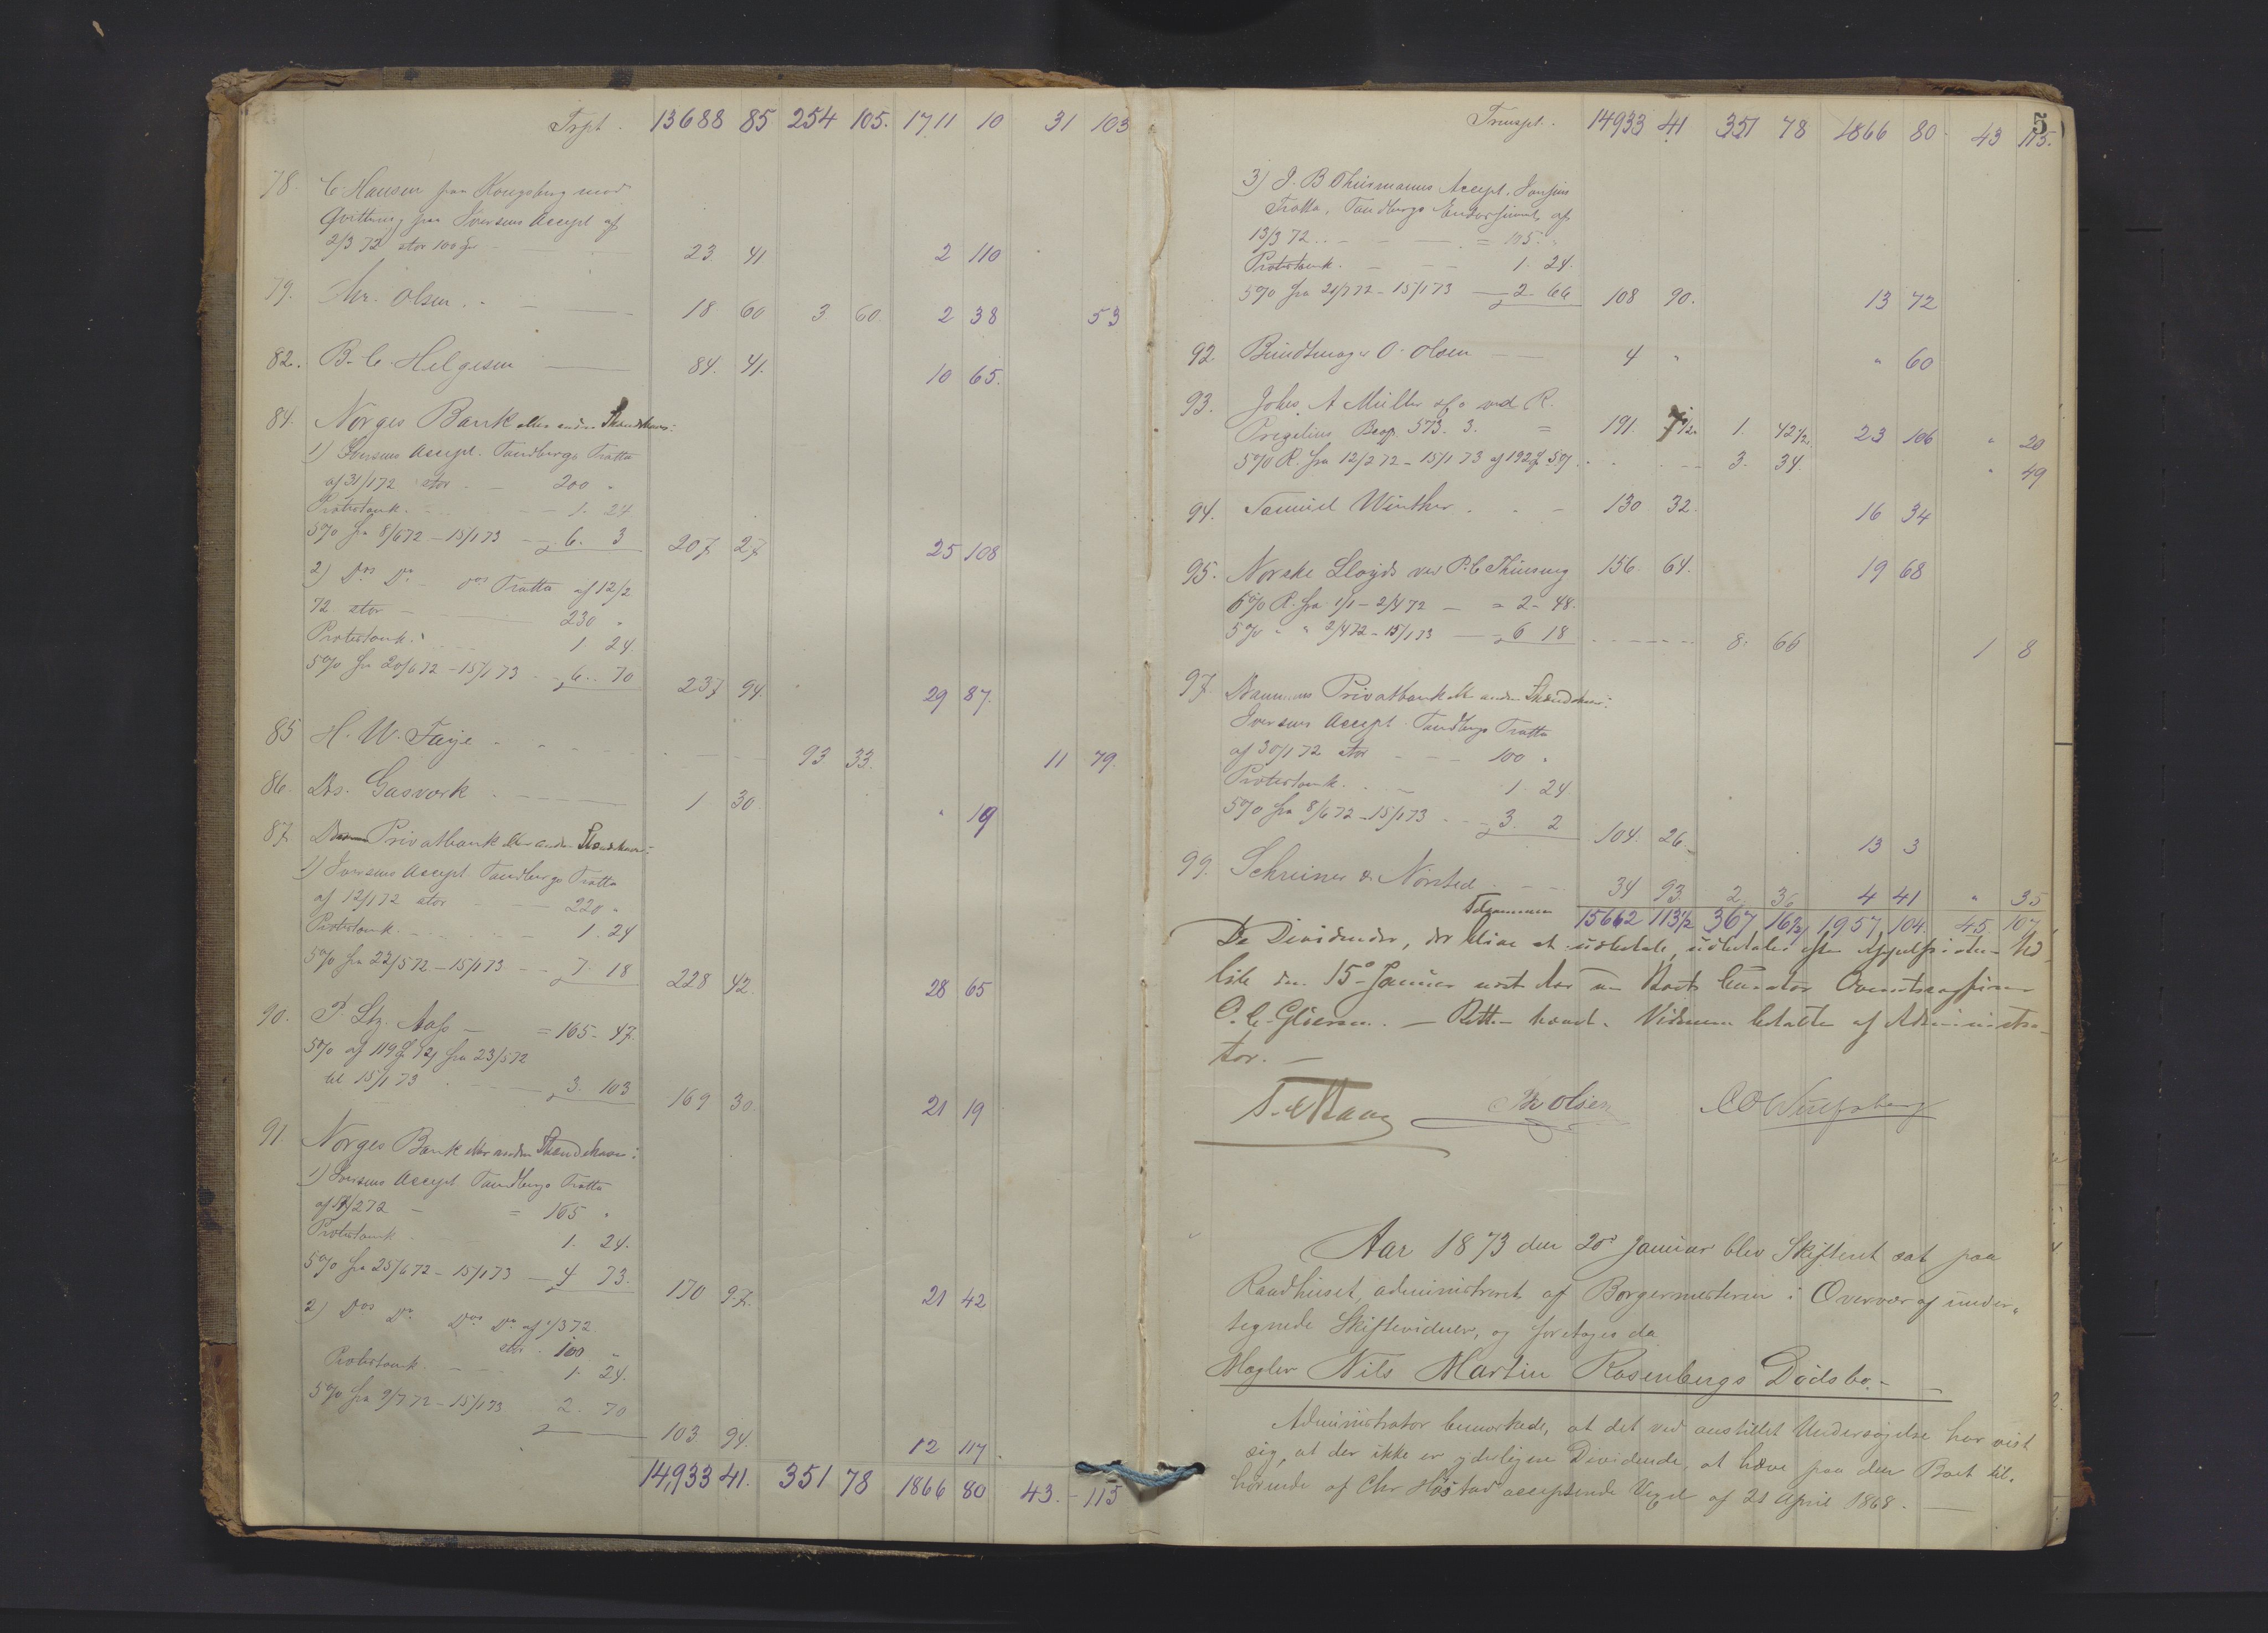 Trpt. 13688 85 254 105. 1711 10 31 103
78. C. Hansen paa Kongsberg mod
Qvittering paa Iversens Accept af
2/3 72 stor 100 23. 41 2 110
79. Chr. Olsen. 18 60 3 60 2 38 53
82. B. C. Helgesen 84. 41. 10 65.
84. Norges Bank eller anden Ihændehaver:
1) Iversens Accept. Tandbergs Tratta
af 31/1 72 stor 200 "
Protestomk. 1. 24
5% fra 8/6 72 – 15/1 73 6. 3 207 27 25 108
2) Ds Do ds Tratta af 12/2
72 stor 230 "
Protestomk. 1 24.
5% fra 20/6 72 – 15/1 73 6. 70 237 94. 29 87.
85 H. W. Faye 93 33. 11 79.
86. Ds. Gasværk 1 30. " 19
87 Privatbank eller anden Ihændehaver:
1) Iversens Accept Tandbergs Tratta
af 12/1 72 stor 220 "
Protestomk. 1. 24
5% fra 22/5 72 – 15/1 73 7. 18 228 42. 28 65
90. P. Ltz. Aass = 165. 47.
5% af 119 fra 23/5 72
til 15/1 73 3. 103 169 30 21 19
91. Norges Bank eller anden Ihændehaver:
1) Iversens Accept Tandbergs Tratta
= 165 "
Protestomk 1. 24.
5% fra 25/6 72 – 15/1 73 4 73. 170 97. 21 42
2) Ds Do Ds Do af 1/3 72
stor 100 "
Protestomk. 1. 24.
5% fra 9/7 72 – 15/1 73 2. 70
103. 94. 12 117
14,933 41. 351 78 1866 80 43. 115
5
Transpt. 14933 41 351 78 1866 80 43 115.
3) J. B Thiismanns Accept,
Tratta, Tandbergs Endossement af
13/3 72 = 105. "
Protestomk. 1. 24.
5% fra 21/7 72 – 15/1 73 2. 66 108 90. 13 72
92. Bundtmager O. Olsen 4 " " 60
93. Johs. A Müller ved R.
Pregelius 573. 3. = 191. 1. 42½ 23 106 " 20
5% R. fra 12/2 72 – 15/1 73 af 192 3. 34. " 49
94. Samuel Winther 130 32. 16 34
95. Norske Lloyds ved P. C. Thiesing 156. 64. 19 68
6% R. fra 1/1 – 2/4 72 = 2. 48.
5% " " 2/4 72 – 15/1 73 6 18 8. 66 1 8
97. Privatbank eller anden Ihændehaver:
Iversens Accept. Tandbergs Tratta
af 30/1 72 stor 100 "
Protestomk. 1. 24
5% fra 8/6 72 – 15/1 73 3. 2 104. 26. 13 3
99. Schreiner & Nørsted 34 93. 2. 36 4 41 " 35
Tilsammen 15662 113½ 367 16½ 1,957 104. 45. 107
De Dividender, der blive at udbetale, udbetales efter
den 15de Januar Boets Curator
O. C. – Retten hævet. Vidnerne betalte af Administra-
tor. –
Olsen
Aar 1873 den 20d Januar blev Skifteret sat paa
Raadhuset, administreret af Borgermesteren i Overvær af under-
tegnede Skiftevidner, og foretoges da
Mægler Nils Martin Rosenbergs Dødsbo. –
Administrator bemærkede, at det ved anstillet Undersøgelse har vist
sig, at der ikke er yderligere Dividende, at hæve paa den Boet til-
hørende af Chr Høstad accepterede Vexel af 21 April 1868. –